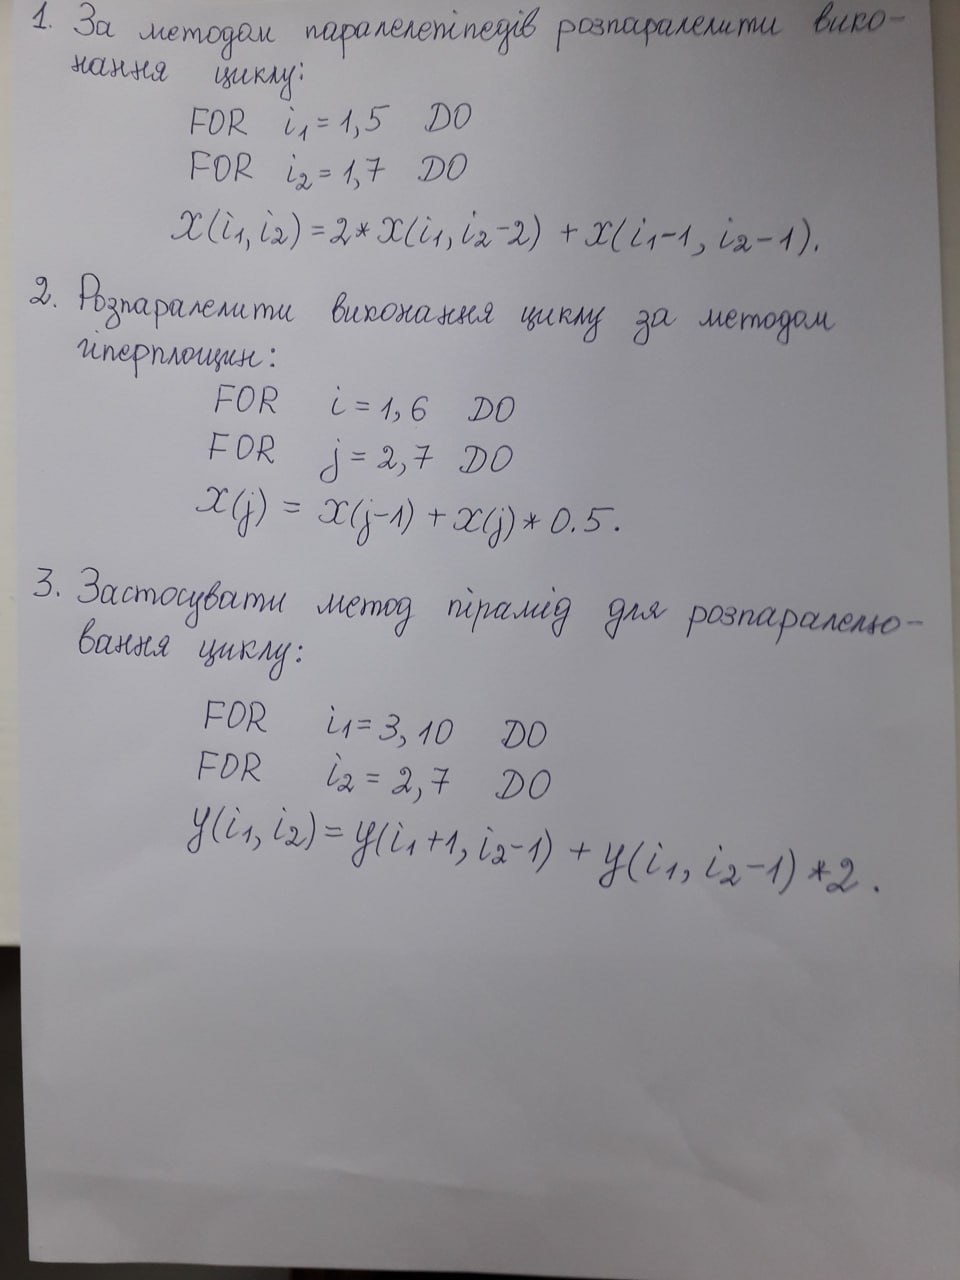 1. За методом паралелепіпедів розпаралелити вико-
нання циклу:
FOR i₁=1,5 DO
FOR i₂=1,7 DO
x(i₁,i₂)=2*x(i₁,i₂-2)+x(i₁-1,i₂-1).
2. Розпаралелити виконання циклу за методом
гіперплощин:
FOR i=1,6 DO
FOR j=2,7 DO
x(j) = x(j-1)+x(j)*0.5.
3. Застосувати метод пірамід для розпаралелю-
вання циклу:
FOR i₁=3,10 DO
FOR i₂=2,7 DO
y(i₁,i₂)=y(i₁+1,i₂-1)+y(i₁,i₂-1)*2.